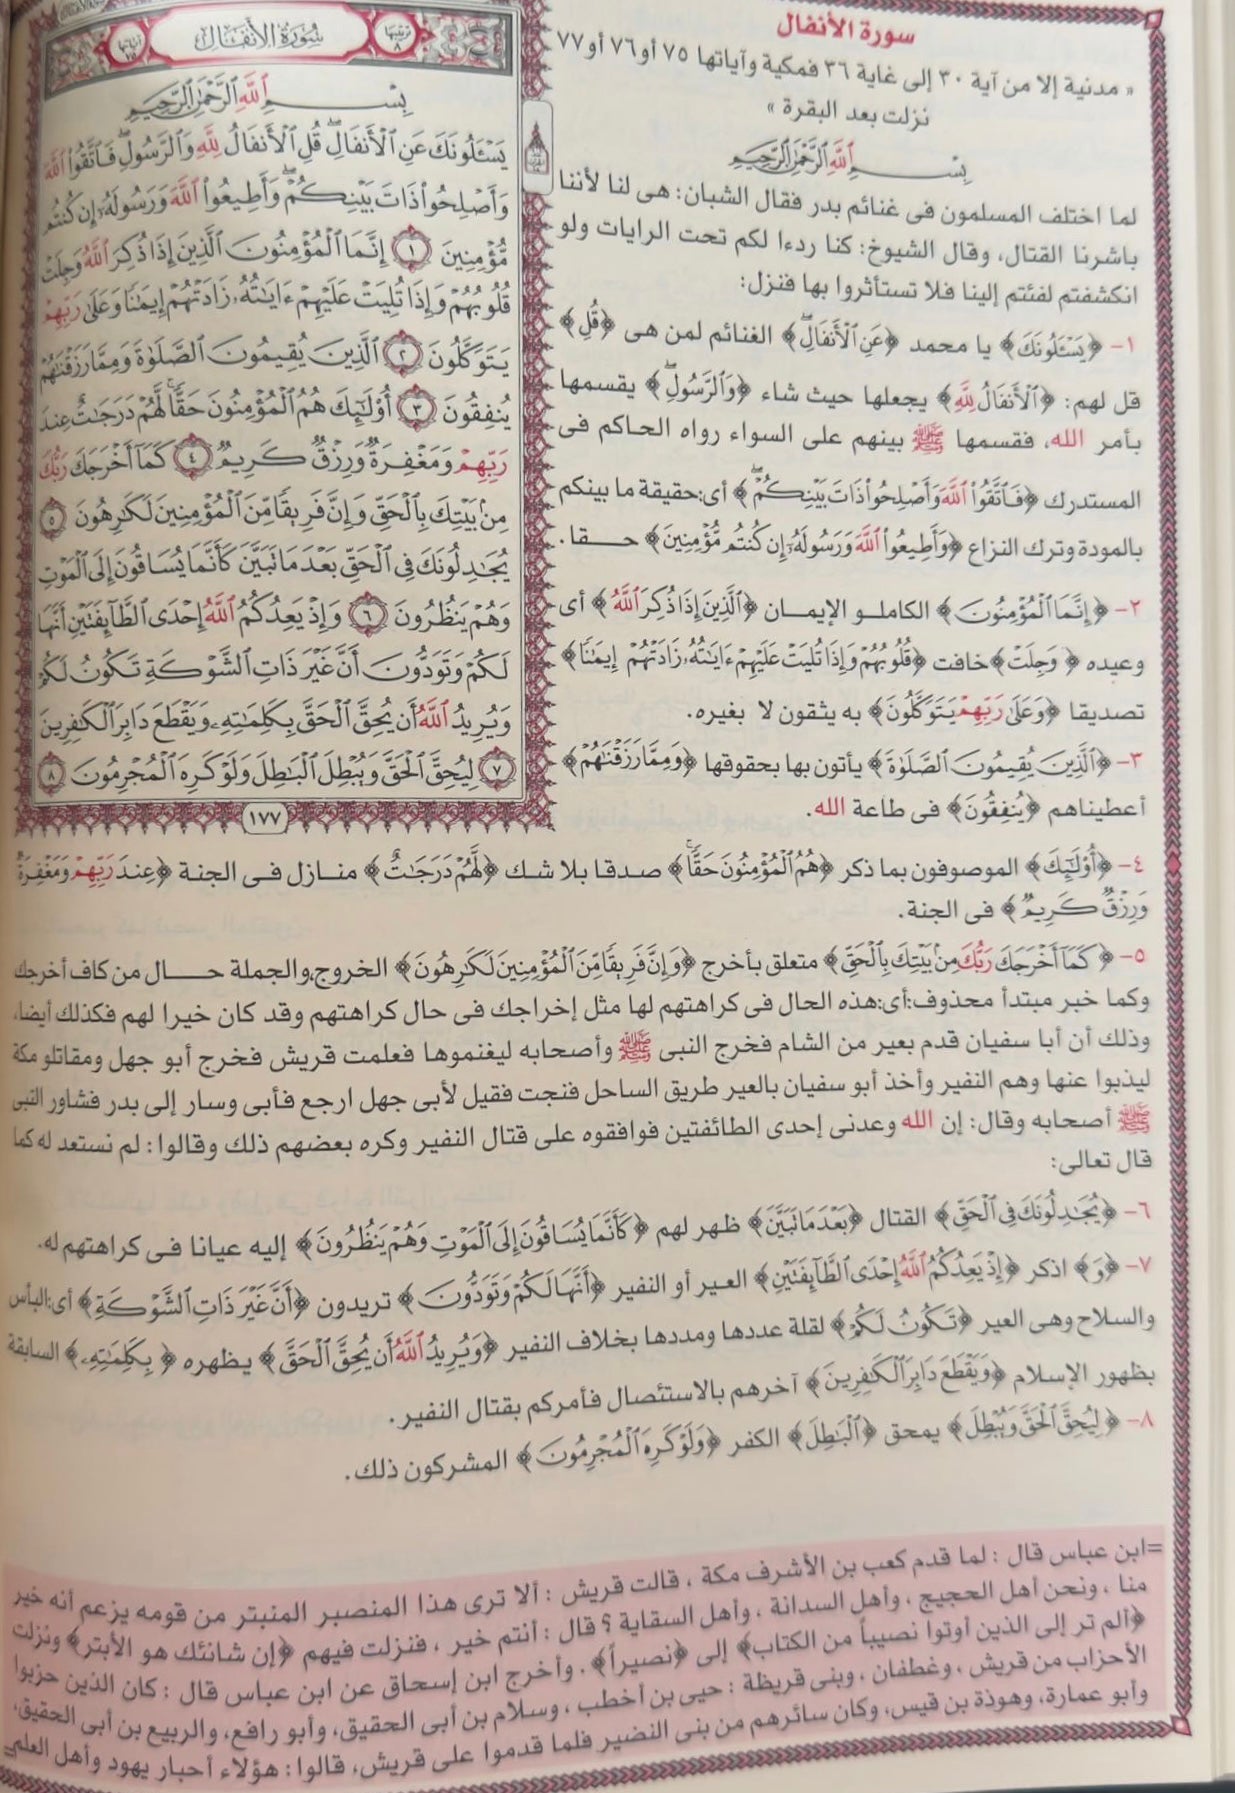 سورة الأنفال
« مدنية إلا من آية ٣٠ إلى غاية ٣٦ فمكية وآياتها ٧٥ أو ٧٦ أو ٧٧
نزلت بعد البقرة »
بِسْمِ اللَّهِ الرَّحْمَٰنِ الرَّحِيمِ
لما اختلف المسلمون فى غنائم بدر فقال الشبان: هى لنا لأننا
باشرنا القتال، وقال الشيوخ: كنا ردءا لكم تحت الرايات ولو
انكشفتم لفئتم إلينا فلا تستأثروا بها فنزل:
١- ﴿يَسْـَٔلُونَكَ﴾ يا محمد ﴿عَنِ ٱلْأَنفَالِ ۖ﴾ الغنائم لمن هى ﴿قُلِ﴾
قل لهم: ﴿ٱلْأَنفَالُ لِلَّهِ﴾ يجعلها حيث شاء ﴿وَٱلرَّسُولِ ۖ﴾ يقسمها
بأمر الله، فقسمها ﷺ بينهم على السواء رواه الحاكم فى
المستدرك ﴿فَٱتَّقُوا۟ ٱللَّهَ وَأَصْلِحُوا۟ ذَاتَ بَيْنِكُمْ ۖ﴾ أى:حقيقة ما بينكم
بالمودة وترك النزاع ﴿وَأَطِيعُوا۟ ٱللَّهَ وَرَسُولَهُۥٓ إِن كُنتُم مُّؤْمِنِينَ﴾ حقا.
٢- ﴿إِنَّمَا ٱلْمُؤْمِنُونَ﴾ الكاملو الإيمان ﴿ٱلَّذِينَ إِذَا ذُكِرَ ٱللَّهُ﴾ أى
وعيده ﴿وَجِلَتْ﴾ خافت ﴿قُلُوبُهُمْ وَإِذَا تُلِيَتْ عَلَيْهِمْ ءَايَٰتُهُۥ زَادَتْهُمْ إِيمَٰنًا﴾
تصديقا ﴿وَعَلَىٰ رَبِّهِمْ يَتَوَكَّلُونَ﴾ به يثقون لا بغيره.
٣- ﴿ٱلَّذِينَ يُقِيمُونَ ٱلصَّلَوٰةَ﴾ يأتون بها بحقوقها ﴿وَمِمَّا رَزَقْنَٰهُمْ﴾
أعطيناهم ﴿يُنفِقُونَ﴾ فى طاعة الله.
سُورَةُ الأَنفَالِ
ترتيبها ٨
آياتها ٧٥
بِسْمِ اللَّهِ الرَّحْمَٰنِ الرَّحِيمِ
يَسْـَٔلُونَكَ عَنِ ٱلْأَنفَالِ ۖ قُلِ ٱلْأَنفَالُ لِلَّهِ وَٱلرَّسُولِ ۖ فَٱتَّقُوا۟ ٱللَّهَ
وَأَصْلِحُوا۟ ذَاتَ بَيْنِكُمْ ۖ وَأَطِيعُوا۟ ٱللَّهَ وَرَسُولَهُۥٓ إِن كُنتُم
مُّؤْمِنِينَ ١ إِنَّمَا ٱلْمُؤْمِنُونَ ٱلَّذِينَ إِذَا ذُكِرَ ٱللَّهُ وَجِلَتْ
قُلُوبُهُمْ وَإِذَا تُلِيَتْ عَلَيْهِمْ ءَايَٰتُهُۥ زَادَتْهُمْ إِيمَٰنًا وَعَلَىٰ رَبِّهِمْ
يَتَوَكَّلُونَ ٢ ٱلَّذِينَ يُقِيمُونَ ٱلصَّلَوٰةَ وَمِمَّا رَزَقْنَٰهُمْ
يُنفِقُونَ ٣ أُو۟لَٰٓئِكَ هُمُ ٱلْمُؤْمِنُونَ حَقًّا ۚ لَّهُمْ دَرَجَٰتٌ عِندَ
رَبِّهِمْ وَمَغْفِرَةٌ وَرِزْقٌ كَرِيمٌ ٤ كَمَآ أَخْرَجَكَ رَبُّكَ
مِنۢ بَيْتِكَ بِٱلْحَقِّ وَإِنَّ فَرِيقًا مِّنَ ٱلْمُؤْمِنِينَ لَكَٰرِهُونَ ٥
يُجَٰدِلُونَكَ فِى ٱلْحَقِّ بَعْدَ مَا تَبَيَّنَ كَأَنَّمَا يُسَاقُونَ إِلَى ٱلْمَوْتِ
وَهُمْ يَنظُرُونَ ٦ وَإِذْ يَعِدُكُمُ ٱللَّهُ إِحْدَى ٱلطَّآئِفَتَيْنِ أَنَّهَا
لَكُمْ وَتَوَدُّونَ أَنَّ غَيْرَ ذَاتِ ٱلشَّوْكَةِ تَكُونُ لَكُمْ
وَيُرِيدُ ٱللَّهُ أَن يُحِقَّ ٱلْحَقَّ بِكَلِمَٰتِهِۦ وَيَقْطَعَ دَابِرَ ٱلْكَٰفِرِينَ
٧ لِيُحِقَّ ٱلْحَقَّ وَيُبْطِلَ ٱلْبَٰطِلَ وَلَوْ كَرِهَ ٱلْمُجْرِمُونَ ٨
١٧٧
٤- ﴿أُو۟لَٰٓئِكَ﴾ الموصوفون بما ذكر ﴿هُمُ ٱلْمُؤْمِنُونَ حَقًّا ۚ﴾ صدقا بلا شك ﴿لَّهُمْ دَرَجَٰتٌ﴾ منازل فى الجنة ﴿عِندَ رَبِّهِمْ وَمَغْفِرَةٌ
وَرِزْقٌ كَرِيمٌ﴾ فى الجنة.
٥- ﴿كَمَآ أَخْرَجَكَ رَبُّكَ مِنۢ بَيْتِكَ بِٱلْحَقِّ﴾ متعلق بأخرج ﴿وَإِنَّ فَرِيقًا مِّنَ ٱلْمُؤْمِنِينَ لَكَٰرِهُونَ﴾ الخروج،والجملة حال من كاف أخرجك
وكما خبر مبتدأ محذوف:أى:هذه الحال فى كراهتهم لها مثل إخراجك فى حال كراهتهم وقد كان خيرا لهم فكذلك أيضا،
وذلك أن أبا سفيان قدم بعير من الشام فخرج النبى ﷺ وأصحابه ليغنموها فعلمت قريش فخرج أبو جهل ومقاتلو مكة
ليذبوا عنها وهم النفير وأخذ أبو سفيان بالعير طريق الساحل فنجت فقيل لأبى جهل ارجع فأبى وسار إلى بدر فشاور النبى
ﷺ أصحابه وقال: إن الله وعدنى إحدى الطائفتين فوافقوه على قتال النفير وكره بعضهم ذلك وقالوا: لم نستعد له كما
قال تعالى:
٦- ﴿يُجَٰدِلُونَكَ فِى ٱلْحَقِّ﴾ القتال ﴿بَعْدَ مَا تَبَيَّنَ﴾ ظهر لهم ﴿كَأَنَّمَا يُسَاقُونَ إِلَى ٱلْمَوْتِ وَهُمْ يَنظُرُونَ﴾ إليه عيانا فى كراهتهم له.
٧- ﴿وَ﴾ اذكر ﴿إِذْ يَعِدُكُمُ ٱللَّهُ إِحْدَى ٱلطَّآئِفَتَيْنِ﴾ العير أو النفير ﴿أَنَّهَا لَكُمْ وَتَوَدُّونَ﴾ تريدون ﴿أَنَّ غَيْرَ ذَاتِ ٱلشَّوْكَةِ﴾ أى:البأس
والسلاح وهى العير ﴿تَكُونُ لَكُمْ﴾ لقلة عددها ومددها بخلاف النفير ﴿وَيُرِيدُ ٱللَّهُ أَن يُحِقَّ ٱلْحَقَّ﴾ يظهره ﴿بِكَلِمَٰتِهِۦ﴾ السابقة
بظهور الإسلام ﴿وَيَقْطَعَ دَابِرَ ٱلْكَٰفِرِينَ﴾ آخرهم بالاستئصال فأمركم بقتال النفير.
٨- ﴿لِيُحِقَّ ٱلْحَقَّ وَيُبْطِلَ﴾ يمحق ﴿ٱلْبَٰطِلَ﴾ الكفر ﴿وَلَوْ كَرِهَ ٱلْمُجْرِمُونَ﴾ المشركون ذلك.
=ابن عباس قال : لما قدم كعب بن الأشرف مكة ، قالت قريش : ألا ترى هذا المنصبر المنبتر من قومه يزعم أنه خير
منا ، ونحن أهل الحجيج ، وأهل السدانة ، وأهل السقاية ؟ قال : أنتم خير ، فنزلت فيهم ﴿إن شانئك هو الأبتر﴾ ونزلت
﴿ألم تر إلى الذين أوتوا نصيباً من الكتاب﴾ إلى ﴿نصيراً﴾ . وأخرج ابن إسحاق عن ابن عباس قال : كان الذين حزبوا
الأحزاب من قريش ، وغطفان ، وبنى قريظة : حيى بن أخطب ، وسلام بن أبى الحقيق، وأبو رافع، والربيع بن أبى الحقيق،
وأبو عمارة، وهوذة بن قيس، وكان سائرهم من بنى النضير فلما قدموا على قريش، قالوا: هؤلاء أحبار يهود وأهل العلم